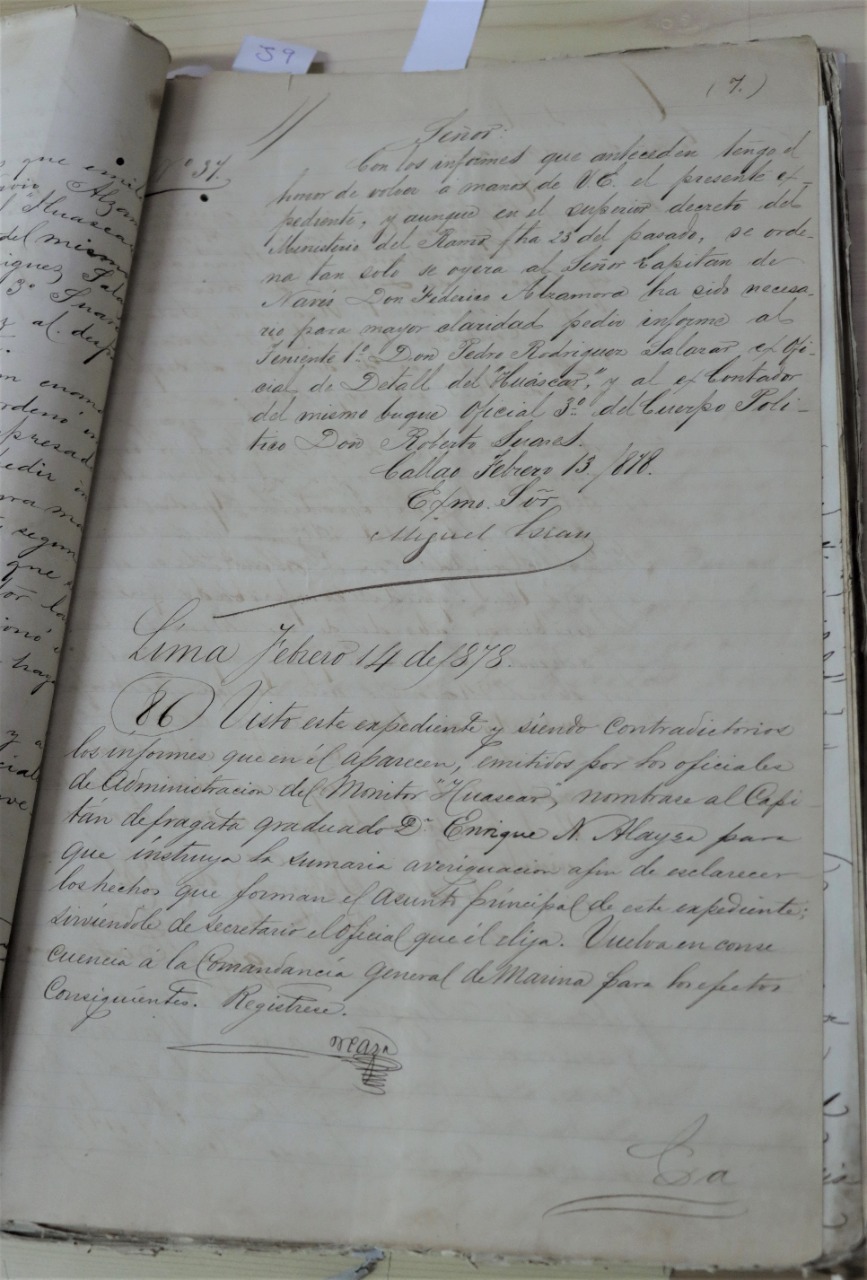 59
(7.)
Nº 37.
Señor:
Con los informes que anteceden tengo el
honor de volver a manos de V.E. el presente ex-
pediente, y aunque en el superior decreto del
Ministerio del Ramo fha 23 del pasado, se orde-
na tan solo se oyera al Señor Capitan de
Navio Don Federico Alzamora ha sido necesa-
rio para mayor claridad pedir informe al
Teniente 1º Don Pedro Rodriguez Salazar ex Ofi-
cial de Detall del "Huáscar," y al ex Contador
del mismo buque Oficial 3º del Cuerpo Poli-
tico Don Roberto Suares.
Callao Febrero 13/878.
Exmo. Sõr
Miguel Grau
Lima Febrero 14 de 1878.
86 Visto este expediente y siendo contradictorios
los informes que en él aparecen, emitidos por los oficiales
de Administracion del Monitor "Huascar", nombrase al Capi-
tán de fragata graduado Dn Enrique N. Alayza para
que instruya la sumaria averiguacion afin de esclarecer
los hechos que forman el asunto principal de este expediente;
sirviéndole de secretario el oficial que él elija. Vuelva en conse
cuencia á la Comandancia General de Marina para los efectos
consiguientes. Registrese.
La